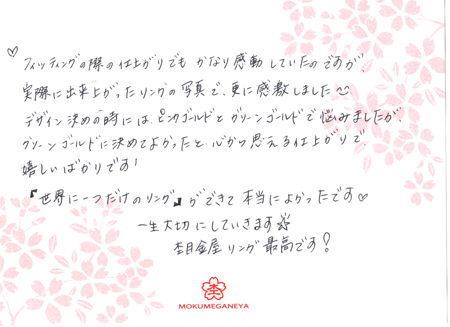 ♡
フィッティングの際の仕上がりでもかなり感動していたのですが、
実際に出来上がったリングの写真で、更に感激しました〜
デザイン決めの時には、ピンクゴールドとグリーンゴールドで悩みましたが、
グリーンゴールドに決めてよかったと心から思える仕上がりで、
嬉しいばかりです!
『世界に一つだけのリング』ができて本当によかったです♡
一生大切にしていきます☆
杢目金屋リング最高です!
MOKUMEGANEYA